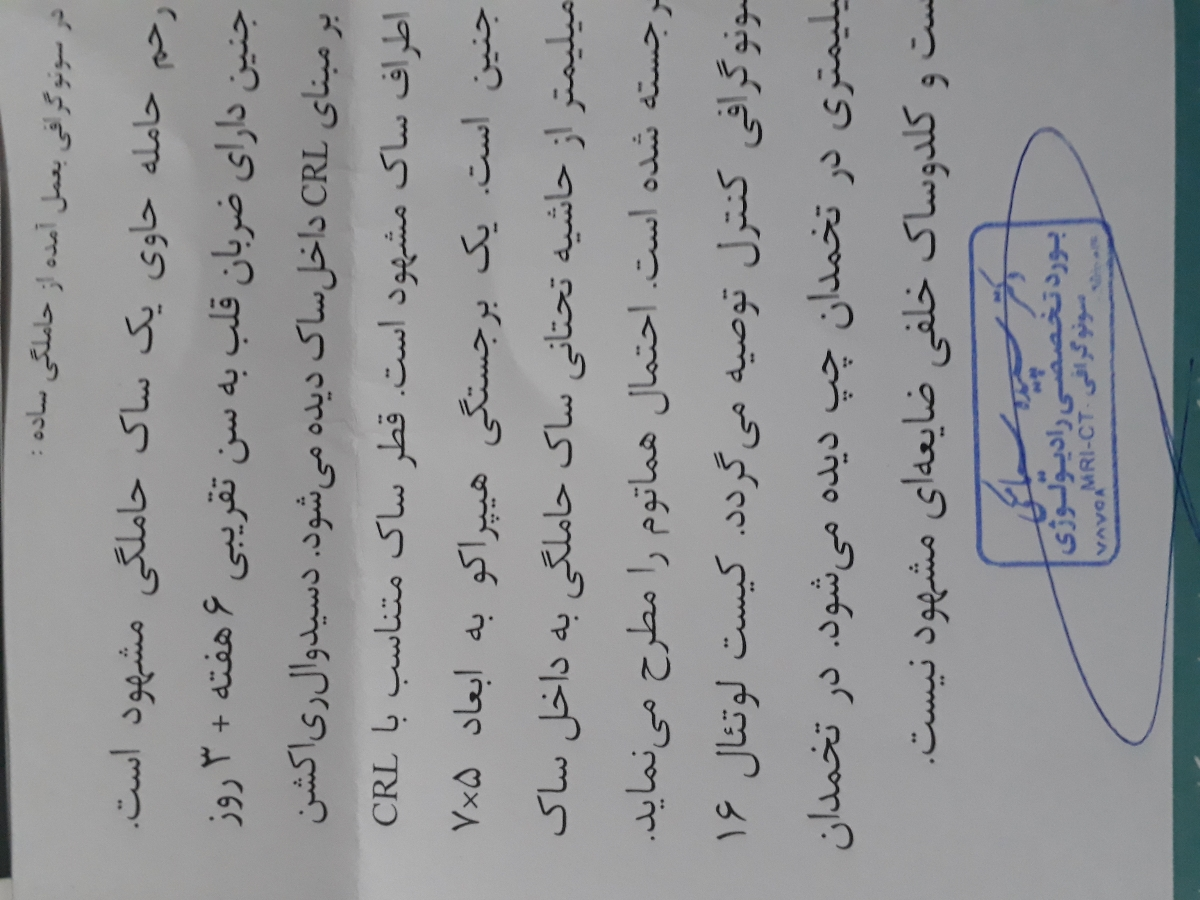 در سونوگرافی بعمل آمده از حاملگی ساده :
رحم حامله حاوی یک ساک حاملگی مشهود است.
جنین دارای ضربان قلب به سن تقریبی ۶ هفته + ۳ روز
بر مبنای CRL داخل ساک دیده می‌شود. دسیدوال‌ری‌اکشن
اطراف ساک مشهود است. قطر ساک متناسب با CRL
جنین است. یک برجستگی هیپراکو به ابعاد ۷×۵
میلیمتر از حاشیه تحتانی ساک حاملگی به داخل ساک
برجسته شده است. احتمال هماتوم را مطرح می‌نماید.
سونوگرافی کنترل توصیه می‌گردد. کیست لوتئال ۱۶
میلیمتری در تخمدان چپ دیده می‌شود. در تخمدان
و کلدوساک خلفی ضایعه‌ای مشهود نیست.
دکتر
بورد تخصصی رادیولوژی
سونوگرافی - MRI-CT
۷۸۷۵۸